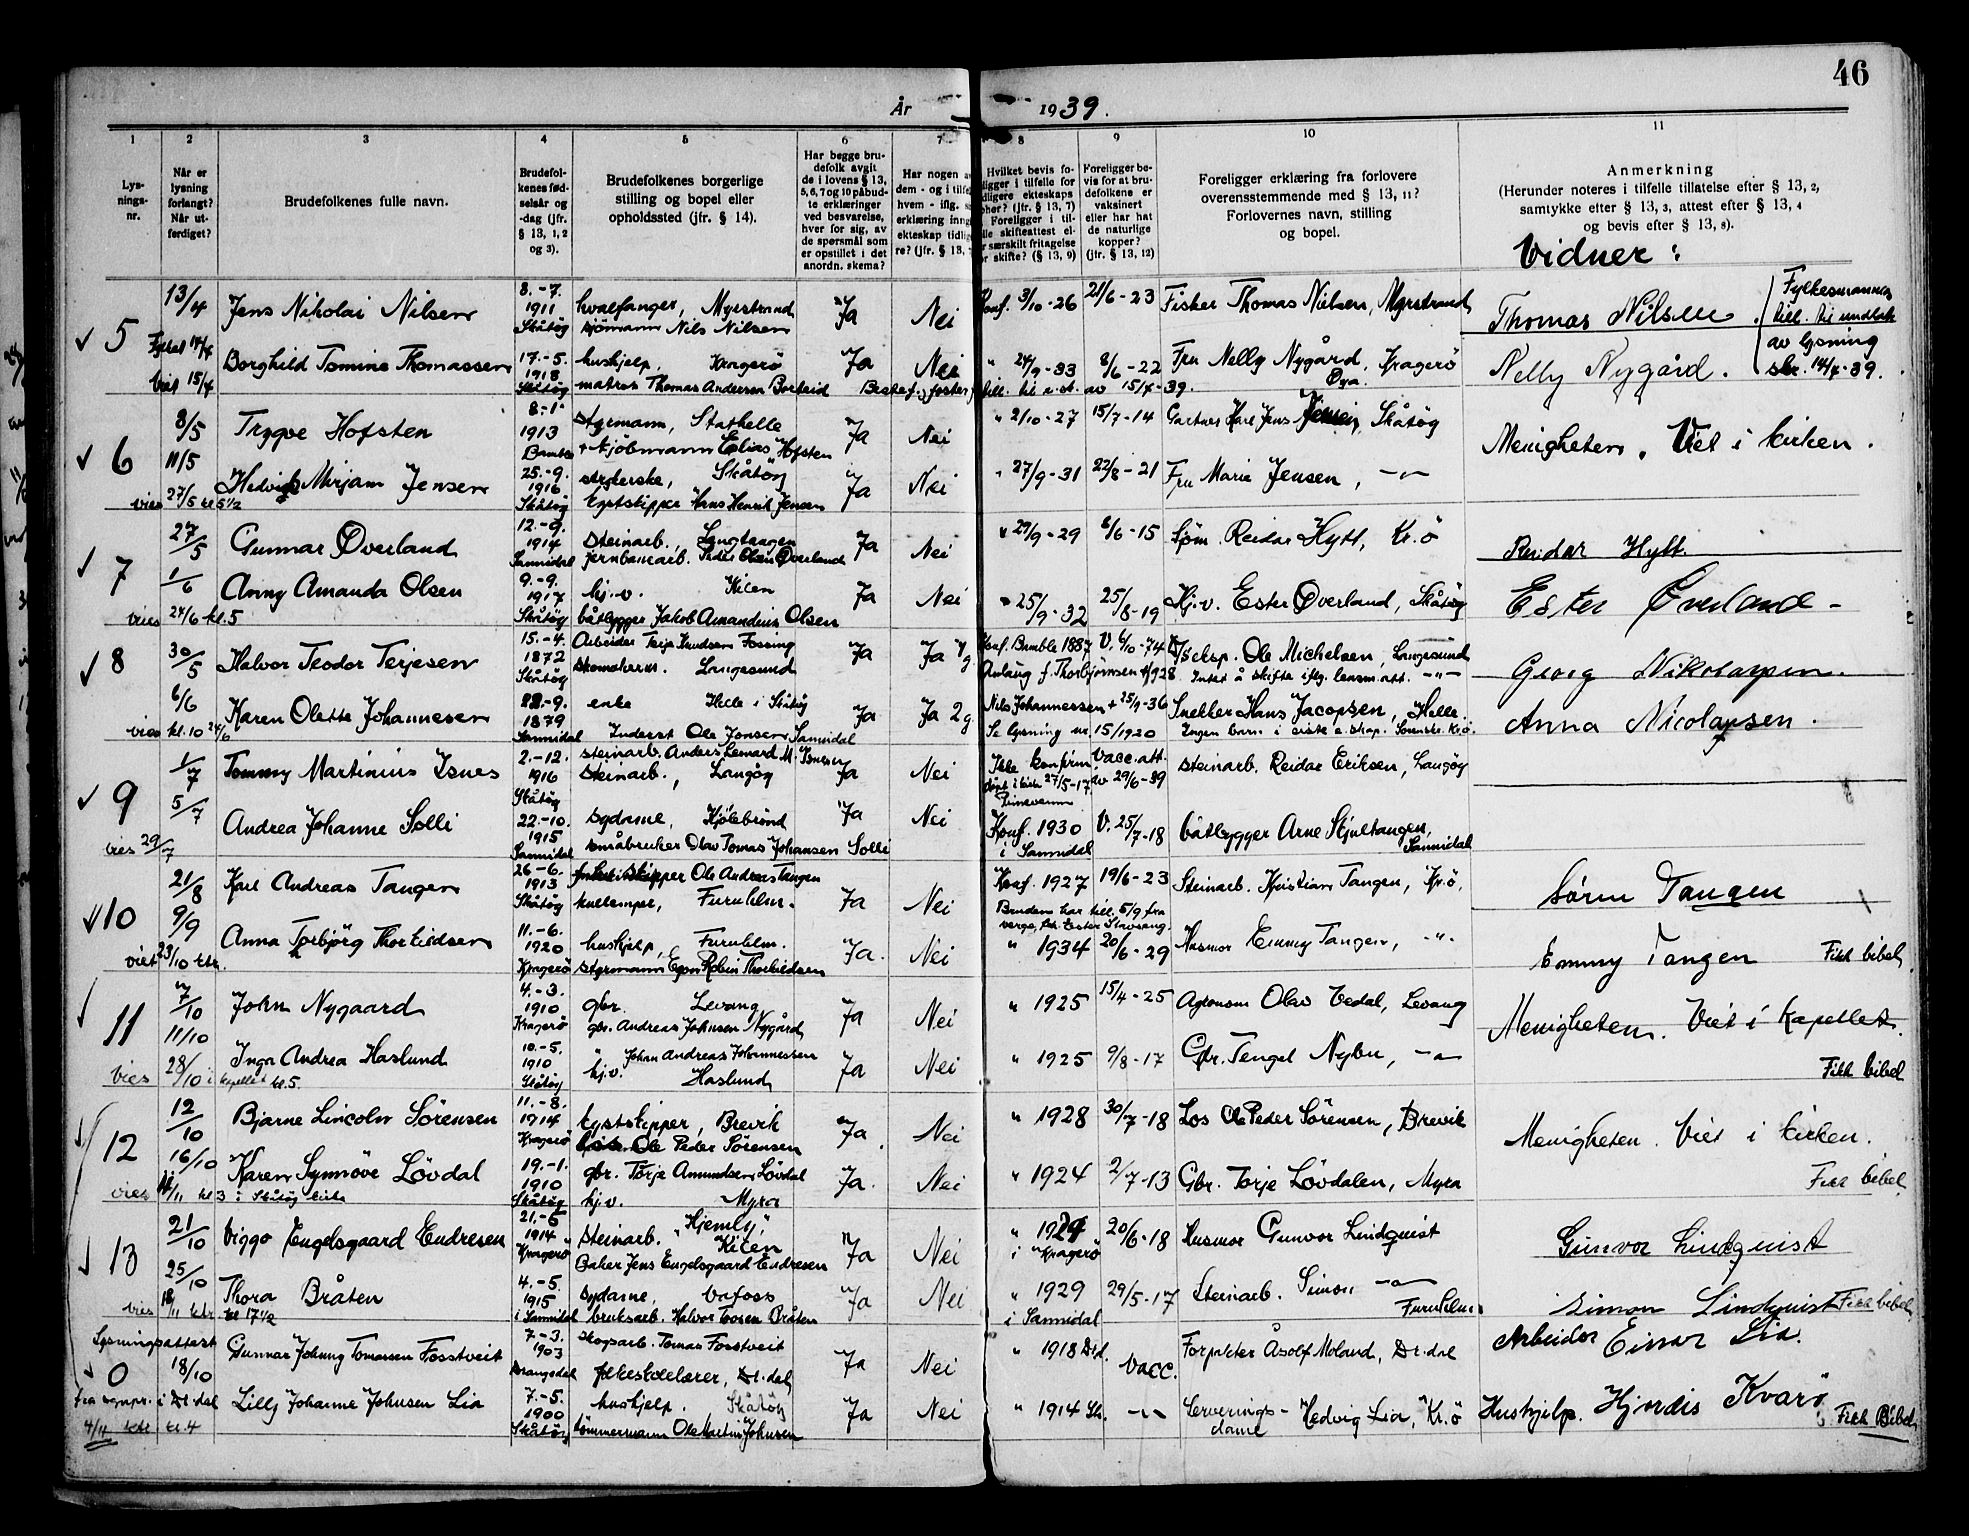 46
År 1939.
1 2 3 4 5 6 7 8 9 10 11
Lys-
nings-
nr.
Når er
lysning
forlangt?
Når ut-
ferdiget?
Brudefolkenes fulle navn.
Brudefol-
kenes fød-
selsår og
-dag (jfr.
§ 13, 1, 2
og 3).
Brudefolkenes borgerlige
stilling og bopel eller
opholdssted (jfr. § 14).
Har begge bru-
defolk avgit
de i lovens § 13,
5, 6, 7 og 10 påbud-
te erklæringer
ved besvarelse,
hver for sig, av
de spørsmål som
er opstillet i det
anordn. skema?
Har nogen a
dem - og i tilfe
hvem - iflg. s
erklæring inng
ekteskap tidlig
re? (jfr. § 13,
Hvilket bevis fo-
ligger i tilfelle for
dligere ekteskaps
pher? (jfr. § 13, 7)
Foreligger i til-
lle skifteattest el-
r særskilt fritagelse
r skifte? (§ 13, 9)
Foreligger be-
vis for at bru-
defolkene er
vaksinert
eller har hat
de naturlige
kopper?
(jfr. § 13, 12)
Foreligger erklæring fra forlovere
overensstemmende med § 13, 11?
Forlovernes navn, stilling
og bopel.
Anmerkning
(Herunder noteres i tilfelle tillatelse efter § 13, 2,
samtykke efter § 13, 3, attest efter § 13, 4
og bevis efter § 13, 8).
Vidner :
5 13/4 Jens Nikolai Nilsen 8.-7. 1911 Skåtøy hvalfanger, Myrstrand Ja Nei Konf. 3/10-26 21/6-23 Fisker Thomas Nielsen, Myrstrand Thomas Nilsen. Fylkesmannens
sjømann Nils Nilsen till. til undlat.
av lysning
skr. 14/4-39.
14/4 Borghild Tomine Thomassen 17.-5. 1918 Skåtøy hushjelp, Kragerø Ja Nei " 24/9-33 8/6-22 Fru Nelly Nygård, Kragerø Nelly Nygård.
Viet 15/4 matros Thomas Andersen till. til e.sk. av 15/4-39. Øya.
6 8/5 Trygve Hofsten 8.-1. 1913 Bamble styrmann, Stathelle Ja Nei " 2/10-27 15/7-14 Gartner Karl Jens Jensen, Skåtøy Menigheten. Viet i kirken.
kjøbmann Elias Hofsten
11/5 Hedvig Mirjam Jensen 25.-9. 1916 Skåtøy strykerske, Skåtøy Ja Nei " 27/9-31 22/8-21 Fru Marie Jensen, -"-
vies 27/5 kl 5 1/2 kystskipper Hans Henrik Jensen
7 27/5 Gunnar Øverland 12.-9. 1914 Sannidal steinarb., Langtangen Ja Nei " 29/9-29 6/6-15 Sjøm. Reidar Hytt, Kr.ø Reidar Hytt
jernbanearb. Peder Olsen Øverland
1/6 Anny Amanda Olsen 9.-9. 1917 Skåtøy hj.v. Kilen Ja Nei " 25/9-32 25/8-19 Hj.v. Ester Øverland, Skåtøy Ester Øverland -
vies 24/6 kl.5 båtbygger Jakob Amandius Olsen
8 30/5 Halvor Teodor Terjesen 15.-4. 1872 Skåtøy Arbeider Terje Knudsen Fossing Ja Ja Konf. Bamble 1887 V. 6/10-74 Ole Michelsen, Langesund Georg Nikolaysen.
skomakerm. Langesund Intet å skifte iflg. lensm.att. -"-
6/6 Karen Olette Johannesen 22.-9. 1879 Sannidal enke Helle i Skåtøy Ja Ja 2 g. Nils Johannessen + 25/9-36 Snekker Hans Jacopsen, Helle. Anna Nicolaysen.
vies kl.10 24/6 Inderst Ole Jonsen Sannidal Se lysning nr. 15/1920 Ingen barn i siste e.skap.
9 1/7 Tommy Martinius Isnes 2.-12. 1916 Skåtøy steinarb. Anders Lenard M. Isnes Ja Nei Ikke konfirm. Vacc.att. av 29/6-39 steinarb. Reidar Eriksen, Langøy
steinarb., Langøy døpt i kirk 27/5-17
5/7 Andrea Johanne Solli 22.-10. 1915 Sannidal sydame, Kjølebrønd Ja Nei Konf. 1930 i Sannidal V. 25/7-18 båtbygger Arne Skjultangen, Sannidal
vies 29/7 småbruker Olav Tomas Johansen Solli
10 21/8 Karl Andreas Tangen 26-6. 1913 Skåtøy skipper Ole Andreas Tangen Ja Nei Konf. 1927 19/6-23 Steinarb. Kristian Tangen, Kr.ø. Søren Tangen
kullemper, Furuhlm. Bruden har till. 5/9 fra
verge,
9/9 Anna Torbjørg Thorkildsen 11.-6. 1920 Kragerø hushjelp, Furuhlm. Ja. Nei " 1934 20/6-29 Husmor Emmy Tangen, -"- Emmy Tangen Fikk bibel
viet 23/10 ktr. styrmann Egon Robin Thorkildsen
11 7/10 John Nygaard 4.-3. 1910 Kragerø gbr. Levang Ja Nei " 1925 15/4-25 Agronom Olav Vedal, Levang Menigheten. Viet i Kapellet.
gbr. Andreas Johnsen Nygård
11/10 Inga Andrea Haslund 10.-5. 1910 Skåtøy Johan Andreas Johannessen Ja Nei " 1925 9/8-17 Gbr. Tengel Nybu, -"- Fikk bibel
vies 28/10 i kapellet kl.5. hj.v. Haslund
12 12/10 Bjarne Lincoln Sørensen 11.-8. 1914 Kragerø kystskipper, Brevik Ja. Nei " 1928 30/7-18 Los Ole Peder Sørensen, Brevik Menigheten. Viet i kirken.
Ole Peder Sørensen
16/10 Karen Synnøve Løvdal 19.-1. 1910 Skåtøy gbr. Torje Amundsen Løvdal Ja. Nei " 1924 2/7-13 Gbr. Torje Løvdalen, Myra Fikk bibel
vies /11 kl 3 i Skåtøy kirke hj.v. Myra
13 21/10 Viggo Engelsgaard Endresen 21.-5 1914 Kragerø steinarb. "Hjemly," Kilen Ja Nei " 1929 i Kragerø 20/6-18 Husmor Gunvor Lindquist Gunvor Lindquist
Baker Jens Engelsgaard Endresen
25/10 Thora Bråten 4.-5. 1915 i Sannidal sydame, Vafoss Ja Nei " 1929 i Sannidal 29/5-17 Steinarb. Simon -"- Furuhlm Simon Lindquist Fikk bibel
vies /11 ktr kl 17 1/2 bruksarb. Halvor Tovsen Bråten
Lysningsattest
0 18/10 Gunnar Johnny Tomassen Fosstveit 7-3. 1903 Drangedal skogsarb. Tomas Fosstveit Ja Nei " 1918 Dr.d. Vacc. Forpakter Åsolf Moland, Dr.dal Arbeider Einar Lia.
folkeskolelærer, Dr.dal
fra sognepr. i Dr.dal Lilly Johanne Johnsen Lia 7.-5. 1900 Skåtøy hushjelp. Skåtøy Ja Nei " 1914 Sk. -"- Serverings-
dame Hedvig Lia, Kr.ø Hushjelp. Hjørdis Kvarø Fikk Bibel
4/11 ktr kl.4 tømmermann Ole Martin Johnsen